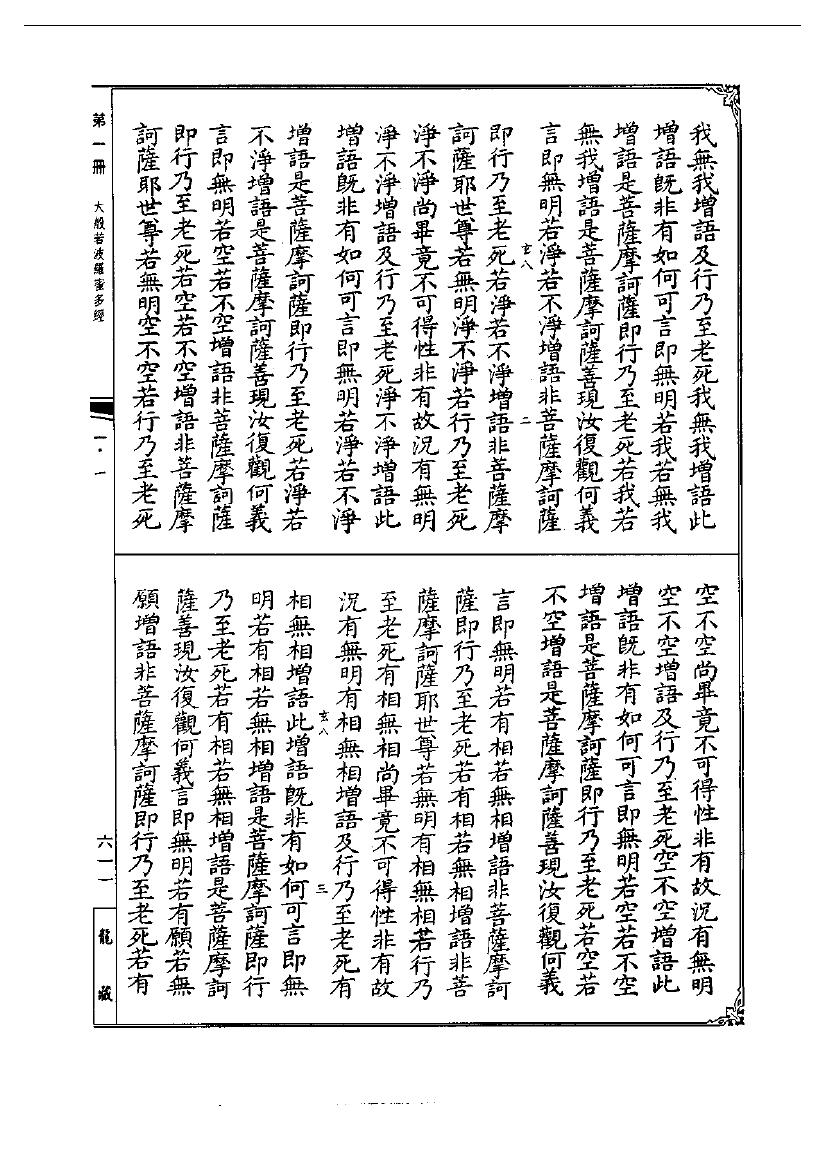 我無我增語及行乃至老死我無我增語此
增語既非有如何可言即無明若我若無我
增語是菩薩摩訶薩即行乃至老死若我若
無我增語是菩薩摩訶薩善現汝復觀何義
言即無明若淨若不淨增語非菩薩摩訶薩
玄八
二
即行乃至老死若淨若不淨增語非菩薩摩
訶薩耶世尊若無明淨不淨若行乃至老死
淨不淨尚畢竟不可得性非有故況有無明
淨不淨增語及行乃至老死淨不淨增語此
增語既非有如何可言即無明若淨若不淨
增語是菩薩摩訶薩即行乃至老死若淨若
不淨增語是菩薩摩訶薩善現汝復觀何義
言即無明若空若不空增語非菩薩摩訶薩
即行乃至老死若空若不空增語非菩薩摩
訶薩耶世尊若無明空不空若行乃至老死
空不空尚畢竟不可得性非有故況有無明
空不空增語及行乃至老死空不空增語此
增語既非有如何可言即無明若空若不空
增語是菩薩摩訶薩即行乃至老死若空若
不空增語是菩薩摩訶薩善現汝復觀何義
言即無明若有相若無相增語非菩薩摩訶
薩即行乃至老死若有相若無相增語非菩
薩摩訶薩耶世尊若無明有相無相若行乃
至老死有相無相尚畢竟不可得性非有故
況有無明有相無相增語及行乃至老死有
玄八
三
相無相增語此增語既非有如何可言即無
明若有相若無相增語是菩薩摩訶薩即行
乃至老死若有相若無相增語是菩薩摩訶
薩善現汝復觀何義言即無明若有願若無
願增語非菩薩摩訶薩即行乃至老死若有
第一冊
大般若波羅蜜多經
一·一
六一一
龍藏